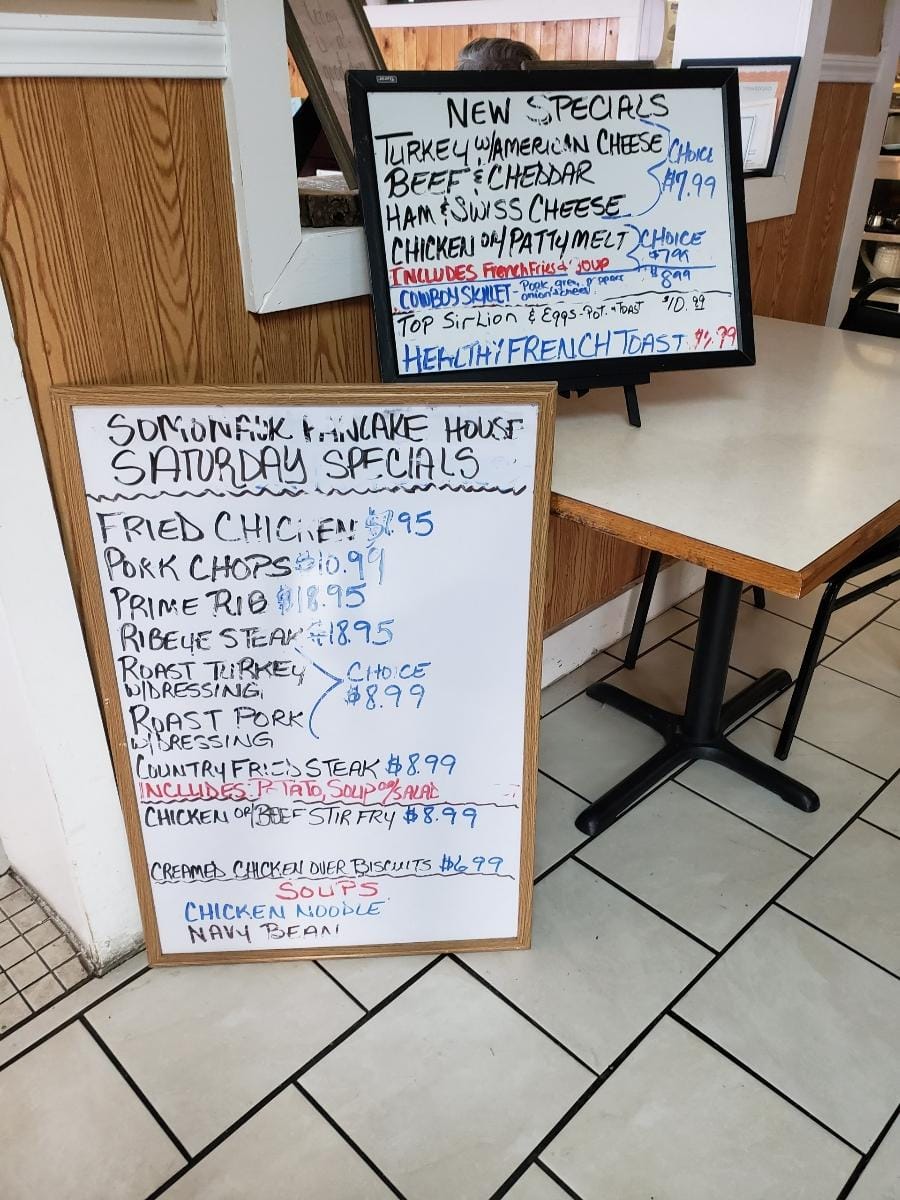 NEW SPECIALS
TURKEY W/AMERICAN CHEESE
BEEF & CHEDDAR
HAM & SWISS CHEESE
CHOICE
$7.99
CHICKEN OR/PATTY MELT
CHOICE
$7.99
INCLUDES French Fries & SOUP
COWBOY SKILLET - Pork,
onion
$8.99
TOP SirLION & EGGS-POT. TOAST $10.99
HEALTHY FRENCH TOAST
SOMONAUK PANCAKE HOUSE
SATURDAY SPECIALS
FRIED CHICKEN
PORK CHOPS $10.99
PRIME RIB $18.95
RIBEYE STEAK $18.95
ROAST TURKEY
W/DRESSING
CHOICE
$8.99
ROAST PORK
W/DRESSING
COUNTRY FRIED STEAK $8.99
INCLUDES: POTATO, SOUP OR/SALAD
CHICKEN OR/BEEF STIR FRY $8.99
CREAMED CHICKEN OVER BISCUITS $6.99
SOUPS
CHICKEN NOODLE
NAVY BEAN